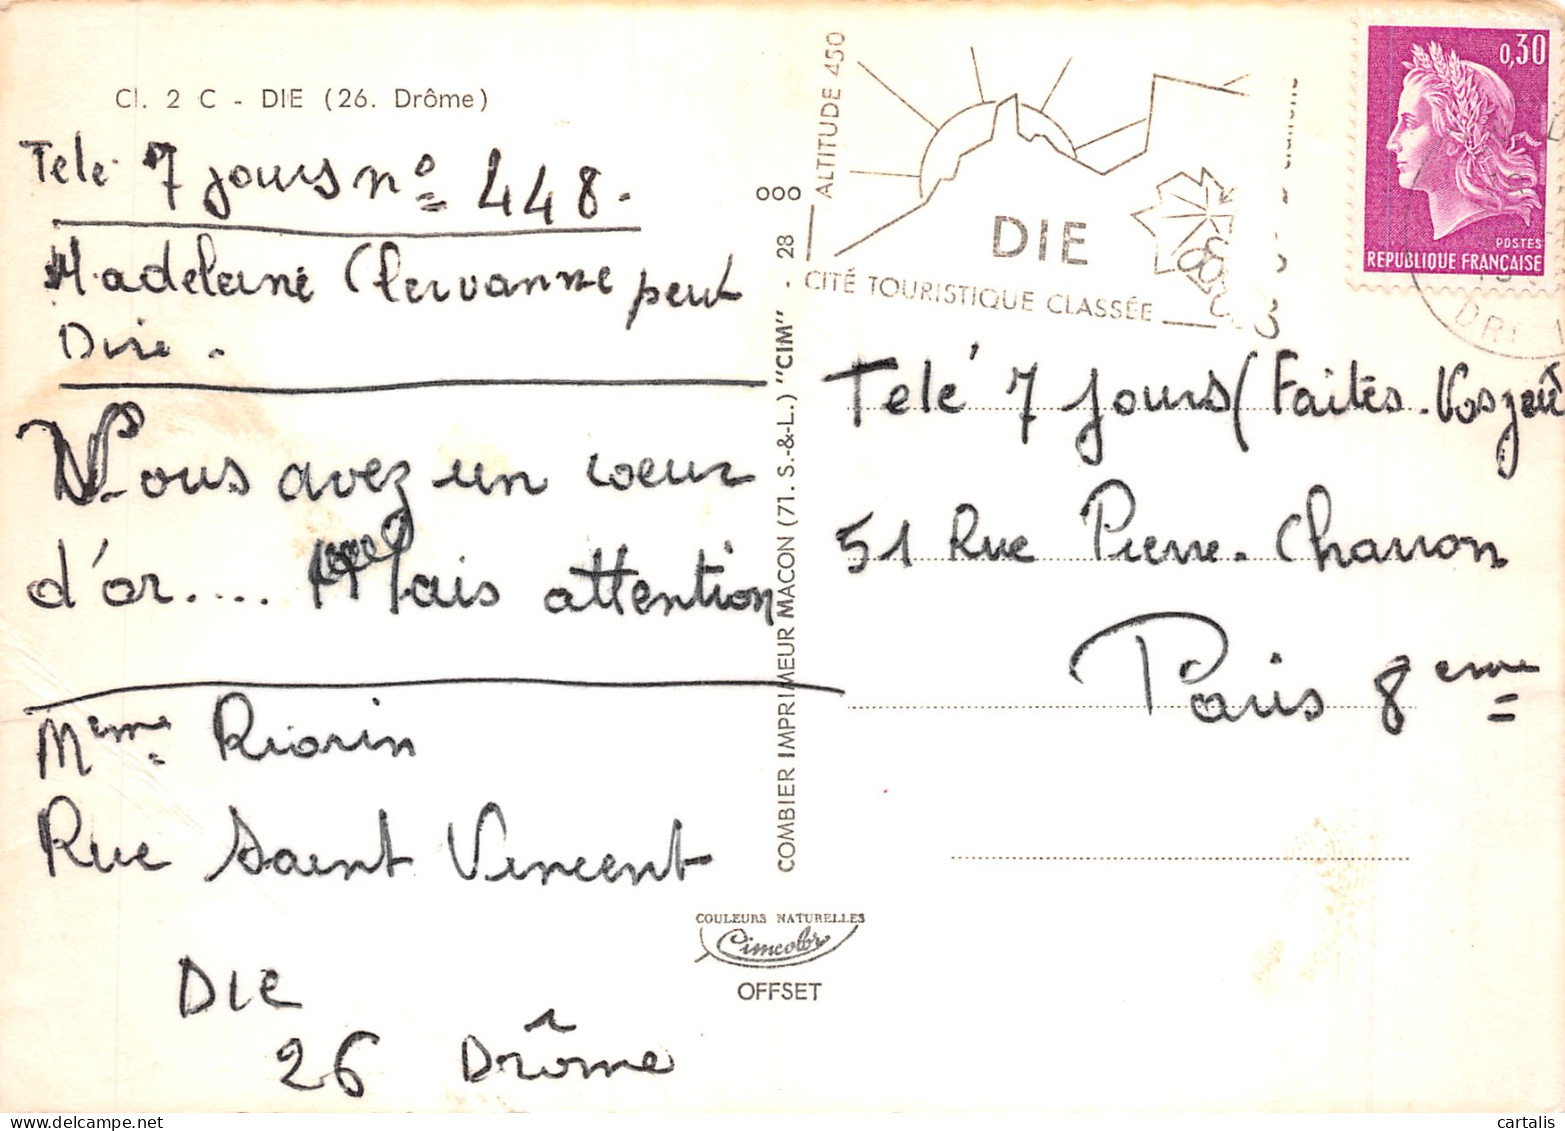 Cl. 2 C - DIE (26. Drôme)
Tele 7 jours nº 448.
Madeleine Clervanne peut
Dire.
Vous avez un coeur
d'or.... Mais attention
Meme Riorin
Rue Saint Vincent
DIE
26 Drôme
COMBIER IMPRIMEUR MACON (71. S.-&-L.) "CIM" - 28 ooo
COULEURS NATURELLES
Cimcolor
OFFSET
ALTITUDE 450
DIE
CITÉ TOURISTIQUE CLASSÉE
0,30
POSTES
REPUBLIQUE FRANÇAISE
Telé 7 Jours (Faites. Vos jeux
51 Rue Pierre. Charron
Paris 8eme
cartalis